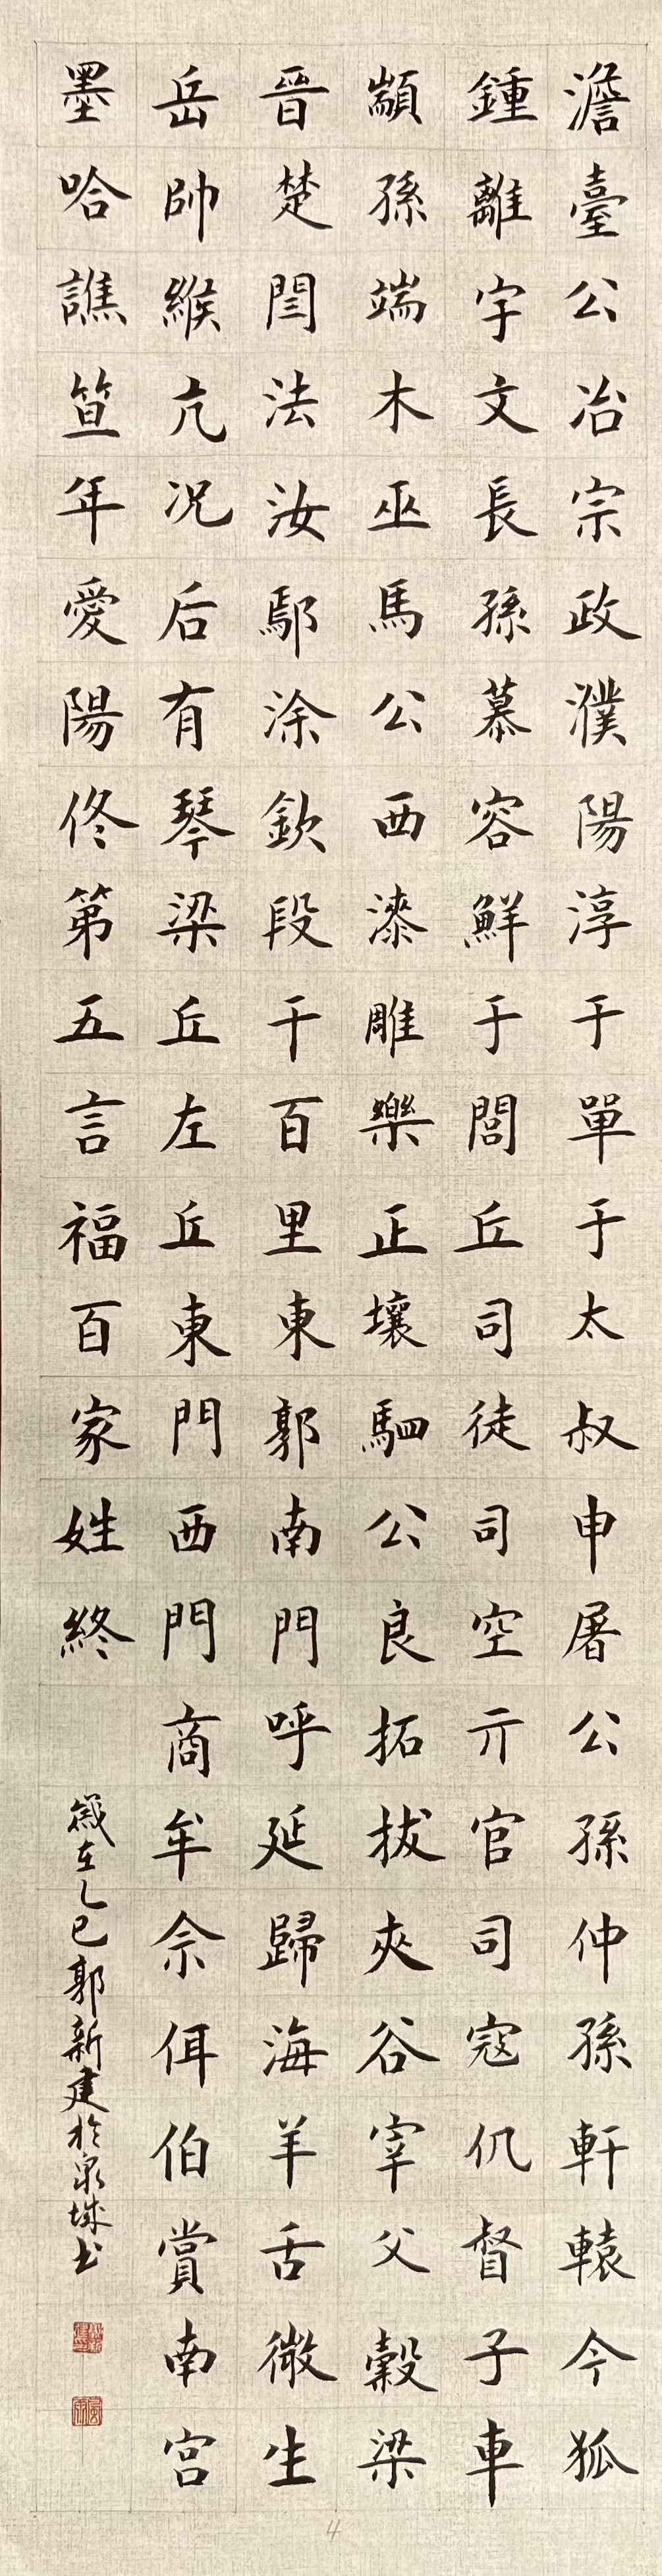 澹臺公冶宗政濮陽淳于單于太叔申屠公孫仲孫軒轅令狐
鍾離宇文長孫慕容鮮于閭丘司徒司空亓官司寇仉督子車
顓孫端木巫馬公西漆雕樂正壤駟公良拓拔夾谷宰父穀梁
晉楚閆法汝鄢涂欽段干百里東郭南門呼延歸海羊舌微生
岳帥緱亢況后有琴梁丘左丘東門西門商牟佘佴伯賞南宮
墨哈譙笪年愛陽佟第五言福百家姓終
歲在乙巳郭新建於泉城書
4